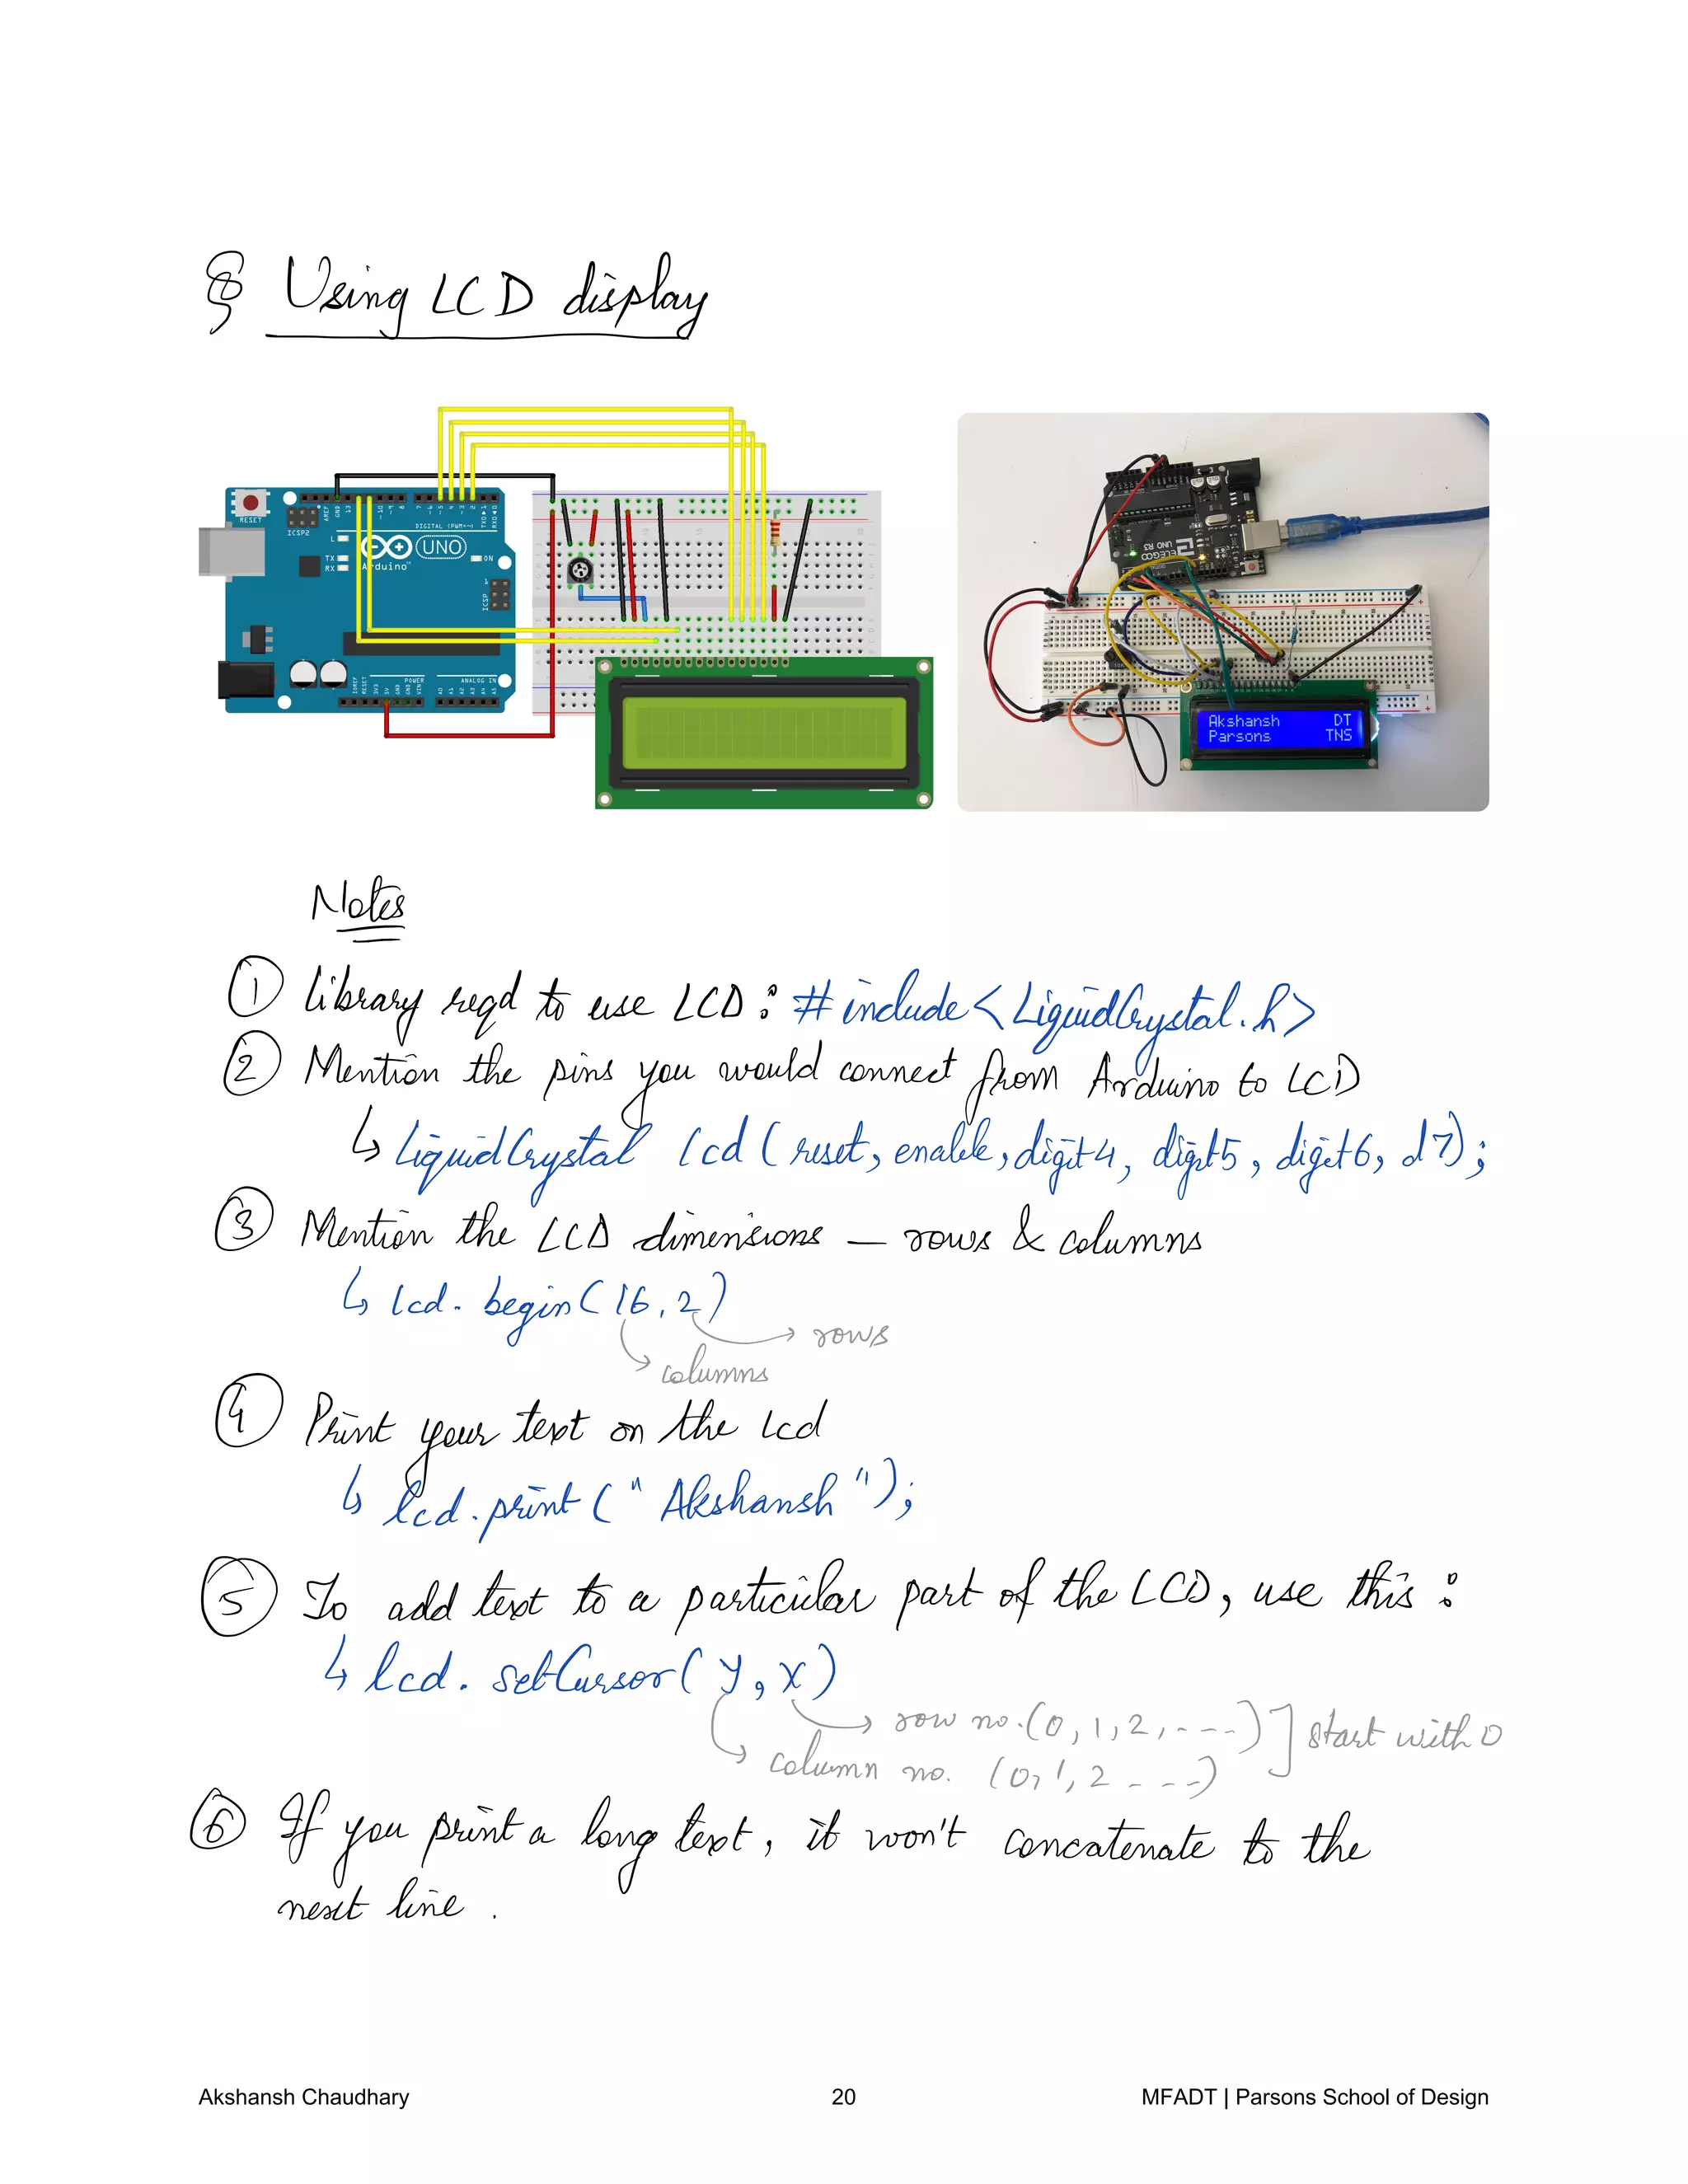 § Using LCD display
RESET
ICSP2
AREF
GND
13
~10
~9
8
7
~6
~5
4
~3
2
TX0▶1
RX0◀0
DIGITAL (PWM=~)
L
TX
RX
Arduino™
UNO
ON
ICSP
1
IOREF
RESET
3V3
5V
GND
GND
VIN
POWER
ANALOG IN
A0
A1
A2
A3
A4
A5
UNO R3
ELEGOO
Akshansh DT
Parsons TNS
Notes
① Library reqd to use LCD: #include <LiquidCrystal.h>
② Mention the pins you would connect from Arduino to LCD
↳ LiquidCrystal lcd (reset, enable, digit4, digit5, digit6, d7);
③ Mention the LCD dimensions — rows & columns
↳ lcd. begin(16,2)
rows
columns
④ Print your text on the lcd
↳ lcd.print("Akshansh");
⑤ To add text to a particular part of the LCD, use this:
↳ lcd. setCursor(y, x)
row no.(0, 1, 2, ---) ] start with 0
column no. (0, 1, 2 ---)
⑥ If you print a long text, it won't concatenate to the
next line .
Akshansh Chaudhary 20 MFADT | Parsons School of Design